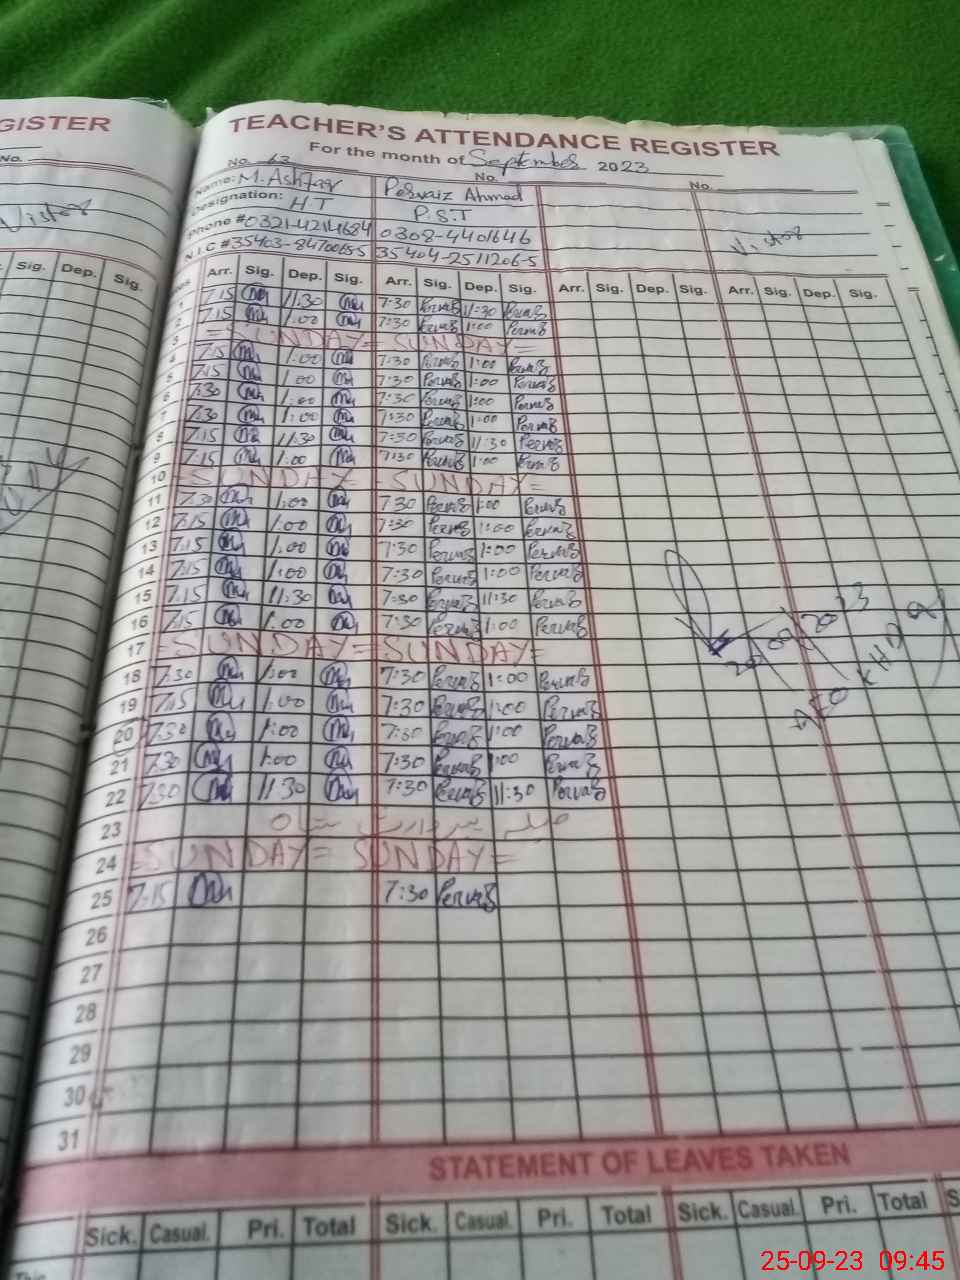 GISTER
No.
TEACHER'S ATTENDANCE REGISTER
For the month of September 2023
No. 63 No. No.
Name: M. Ashfaq Pervaiz Ahmad
Designation: H.T P.S.T
Phone # 0321-4214684 0308-4401646
N.I.C # 35404-2511206-5
Visitor
Visitor
Sig. Dep. Sig.
Arr. Sig. Dep. Sig. Arr. Sig. Dep. Sig. Arr. Sig. Dep. Sig. Arr. Sig. Dep. Sig.
1 7:15 11:30 7:30 Pervaiz 11:30 Pervaiz
2 7:15 1:00 7:30 Pervaiz 1:00 Pervaiz
3 = SUNDAY = SUNDAY =
4 7:15 1:00 7:30 Pervaiz 1:00 Pervaiz
5 7:15 1:00 7:30 Pervaiz 1:00 Pervaiz
6 7:30 1:00 7:30 Pervaiz 1:00 Pervaiz
7 7:30 1:00 7:30 Pervaiz 1:00 Pervaiz
8 7:15 11:30 7:30 Pervaiz 11:30 Pervaiz
9 7:15 1:00 7:30 Pervaiz 1:00 Pervaiz
10 = SUNDAY = SUNDAY =
11 7:30 1:00 7:30 Pervaiz 1:00 Pervaiz
12 7:15 1:00 7:30 Pervaiz 1:00 Pervaiz
13 7:15 1:00 7:30 Pervaiz 1:00 Pervaiz
14 7:15 1:00 7:30 Pervaiz 1:00 Pervaiz
15 7:15 11:30 7:30 Pervaiz 11:30 Pervaiz
16 7:15 1:00 7:30 Pervaiz 1:00 Pervaiz
17 = SUNDAY = SUNDAY =
18 7:30 1:00 7:30 Pervaiz 1:00 Pervaiz
19 7:15 1:00 7:30 Pervaiz 1:00 Pervaiz
20 7:30 1:00 7:30 Pervaiz 1:00 Pervaiz
21 7:30 1:00 7:30 Pervaiz 1:00 Pervaiz
22 7:30 11:30 7:30 Pervaiz 11:30 Pervaiz
23
24 = SUNDAY = SUNDAY =
25 7:15 7:30 Pervaiz
26
27
28
29
30
31
20/09/2023
AEO
STATEMENT OF LEAVES TAKEN
Sick. Casual. Pri. Total Sick. Casual. Pri. Total Sick. Casual. Pri. Total S
This
25-09-23 09:45